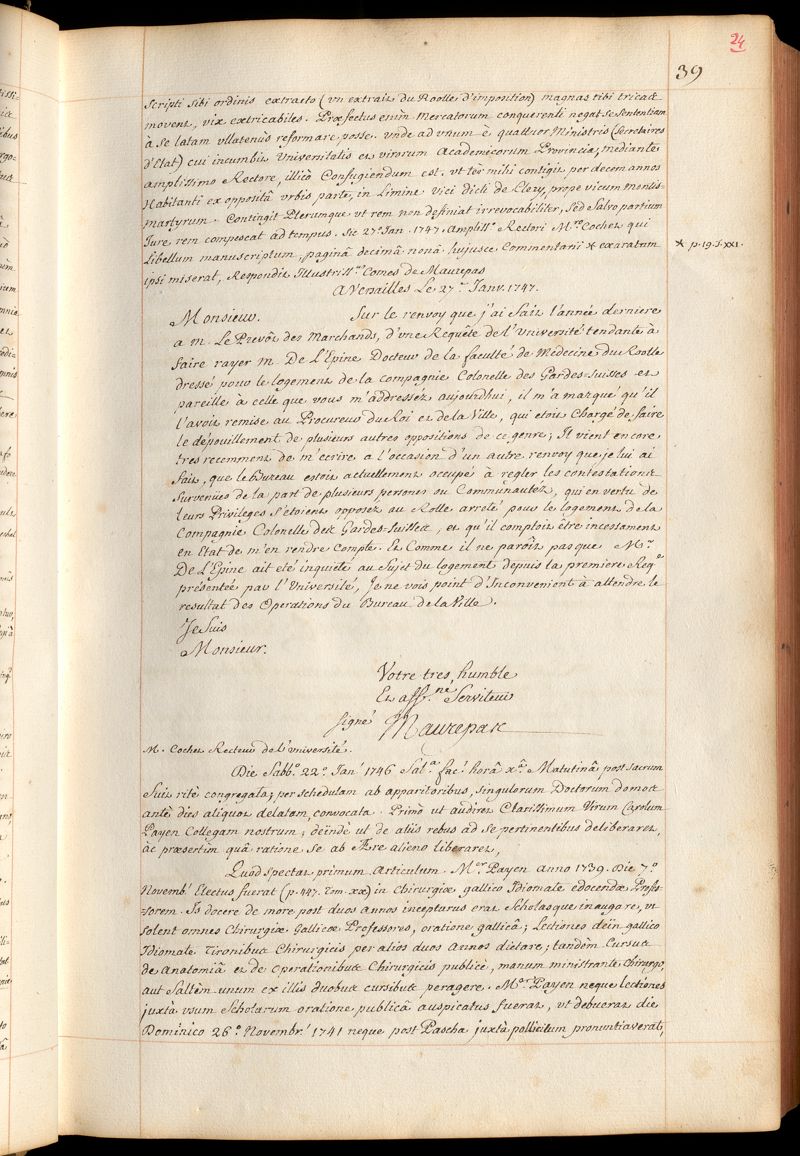 24
39
scripti sibi ordinis extracto (un extrait du Roolle d'imposition) magnas tibi tricas
movent, vix extricabiles. Præfectus enim Mercatorum conquerenti negat se sententiam
à se latam ullatenùs reformare posse. Unde ad unum è quattuor Ministris (secretaires
d'Etat) cui incumbit Universitatis et virorum Academicorum Provincia, mediante
amplissimo Rectore, illicò Confugiendum est. ut tèr mihi contigit per decem annos
Habitanti ex oppositâ urbis parte, in Limine vici dicti de Clery, prope vicum montis-
martyrum. Contingit Plerumque ut rem non definiat irrevocabiliter, sed Salvo partium
Jure, rem compescat ad tempus. Sic 27.ª Jan. 1747. Ampliss.º Rectori M.ro Cochet qui
Libellum manuscriptum, paginâ decimâ nonâ hujusce Commentarii * exaratum
* p. 19. §. XXI.
ipsi miserat, Respondit Illustriss.us Comes de Maurepas
A Versailles Le 27.e Janv. 1747.
Monsieur. Sur le renvoy que j'ai fait l'année derniere
a m. Le Prevôt des Marchands, d'une Requête de l'Université tendante à
faire rayer m. De L'Epine Docteur de la faculté de Médecine du Roolle
dressé pour le logement de la compagnie Colonelle des Gardes-Suisses et
pareille à celle que vous m'addressez aujourdhui, il m'a marqué qu'il
l'avoit remise au Procureur du Roi et de la Ville, qui etoit Chargé de faire
le dépouillement de plusieurs autres oppositions de ce genre; Il vient encore
tres recemment de m'ecrire a l'occasion d'un autre renvoy que je lui ai
fait, que le Bureau estoit actuellement occupé à regler les contestations
Survenües de la part de plusieurs persones ou Communautéz, qui en vertu de
leurs Privileges s'etoient opposez au Rolle arreté pour le logement de la
Compagnie Colonelle des Gardes-Suisses, et qu'il comptoit être incessament
en Etat de m'en rendre Compte. Et Comme il ne paroît pas que M.r
De L'Epine ait eté inquieté au Sujet du logement depuis la premiere Reqe
présentée par l'Université, Je ne vois point d'Inconvenient à attendre le
resultat des Operations du Bureau de la Ville.
Je Suis
Monsieur.
Votre tres humble
Et aff.ne Serviteur
signé Maurepas
M. Cochet Recteur de l'université.
Die Sabb.º 22.ª Jan.i 1746 Sal.a fac.i horâ x.ª Matutinâ post sacrum
Suis ritè congregata; per schedulam ab apparitoribus, singulorum Doctorum domos
antè dies aliquot delatam, convocata. Primò ut audiret Clarissimum Virum Carolum
Payen Collegam nostrum; deindè ut de aliis rebus ad se pertinentibus deliberaret,
àc præsertim quâ ratione se ab Ære alieno liberaret,
Quod spectat primum Articulum. M.er Payen anno 1739. Die 7.ª
Novemb.i Electus fuerat (p. 447. Tom. XX) in Chirurgiæ gallico Idiomate edocendæ Profes-
-sorem. Is docere de more post duos Annos incepturus erat Scholasque inaugurare, ut
solent omnes Chirurgiæ Gallicæ Professores, oratione gallicâ; Lectiones dein gallico
Idiomate Tironibus Chirurgicis per alios duos Annos dictare; tandem Cursus
de Anatomiâ et de Operationibus Chirurgicis publicè, manum ministrante Chirurgo,
aut Saltèm unum ex illis duobus cursibus peragere. M.er Payen neque lectiones
juxtà usum Scholarum oratione publicâ auspicatus fuerat, ut debuerat die
Dominico 26.ª Novembr.i 1741 neque post Pascha juxtà pollicitum pronuntiaverat,